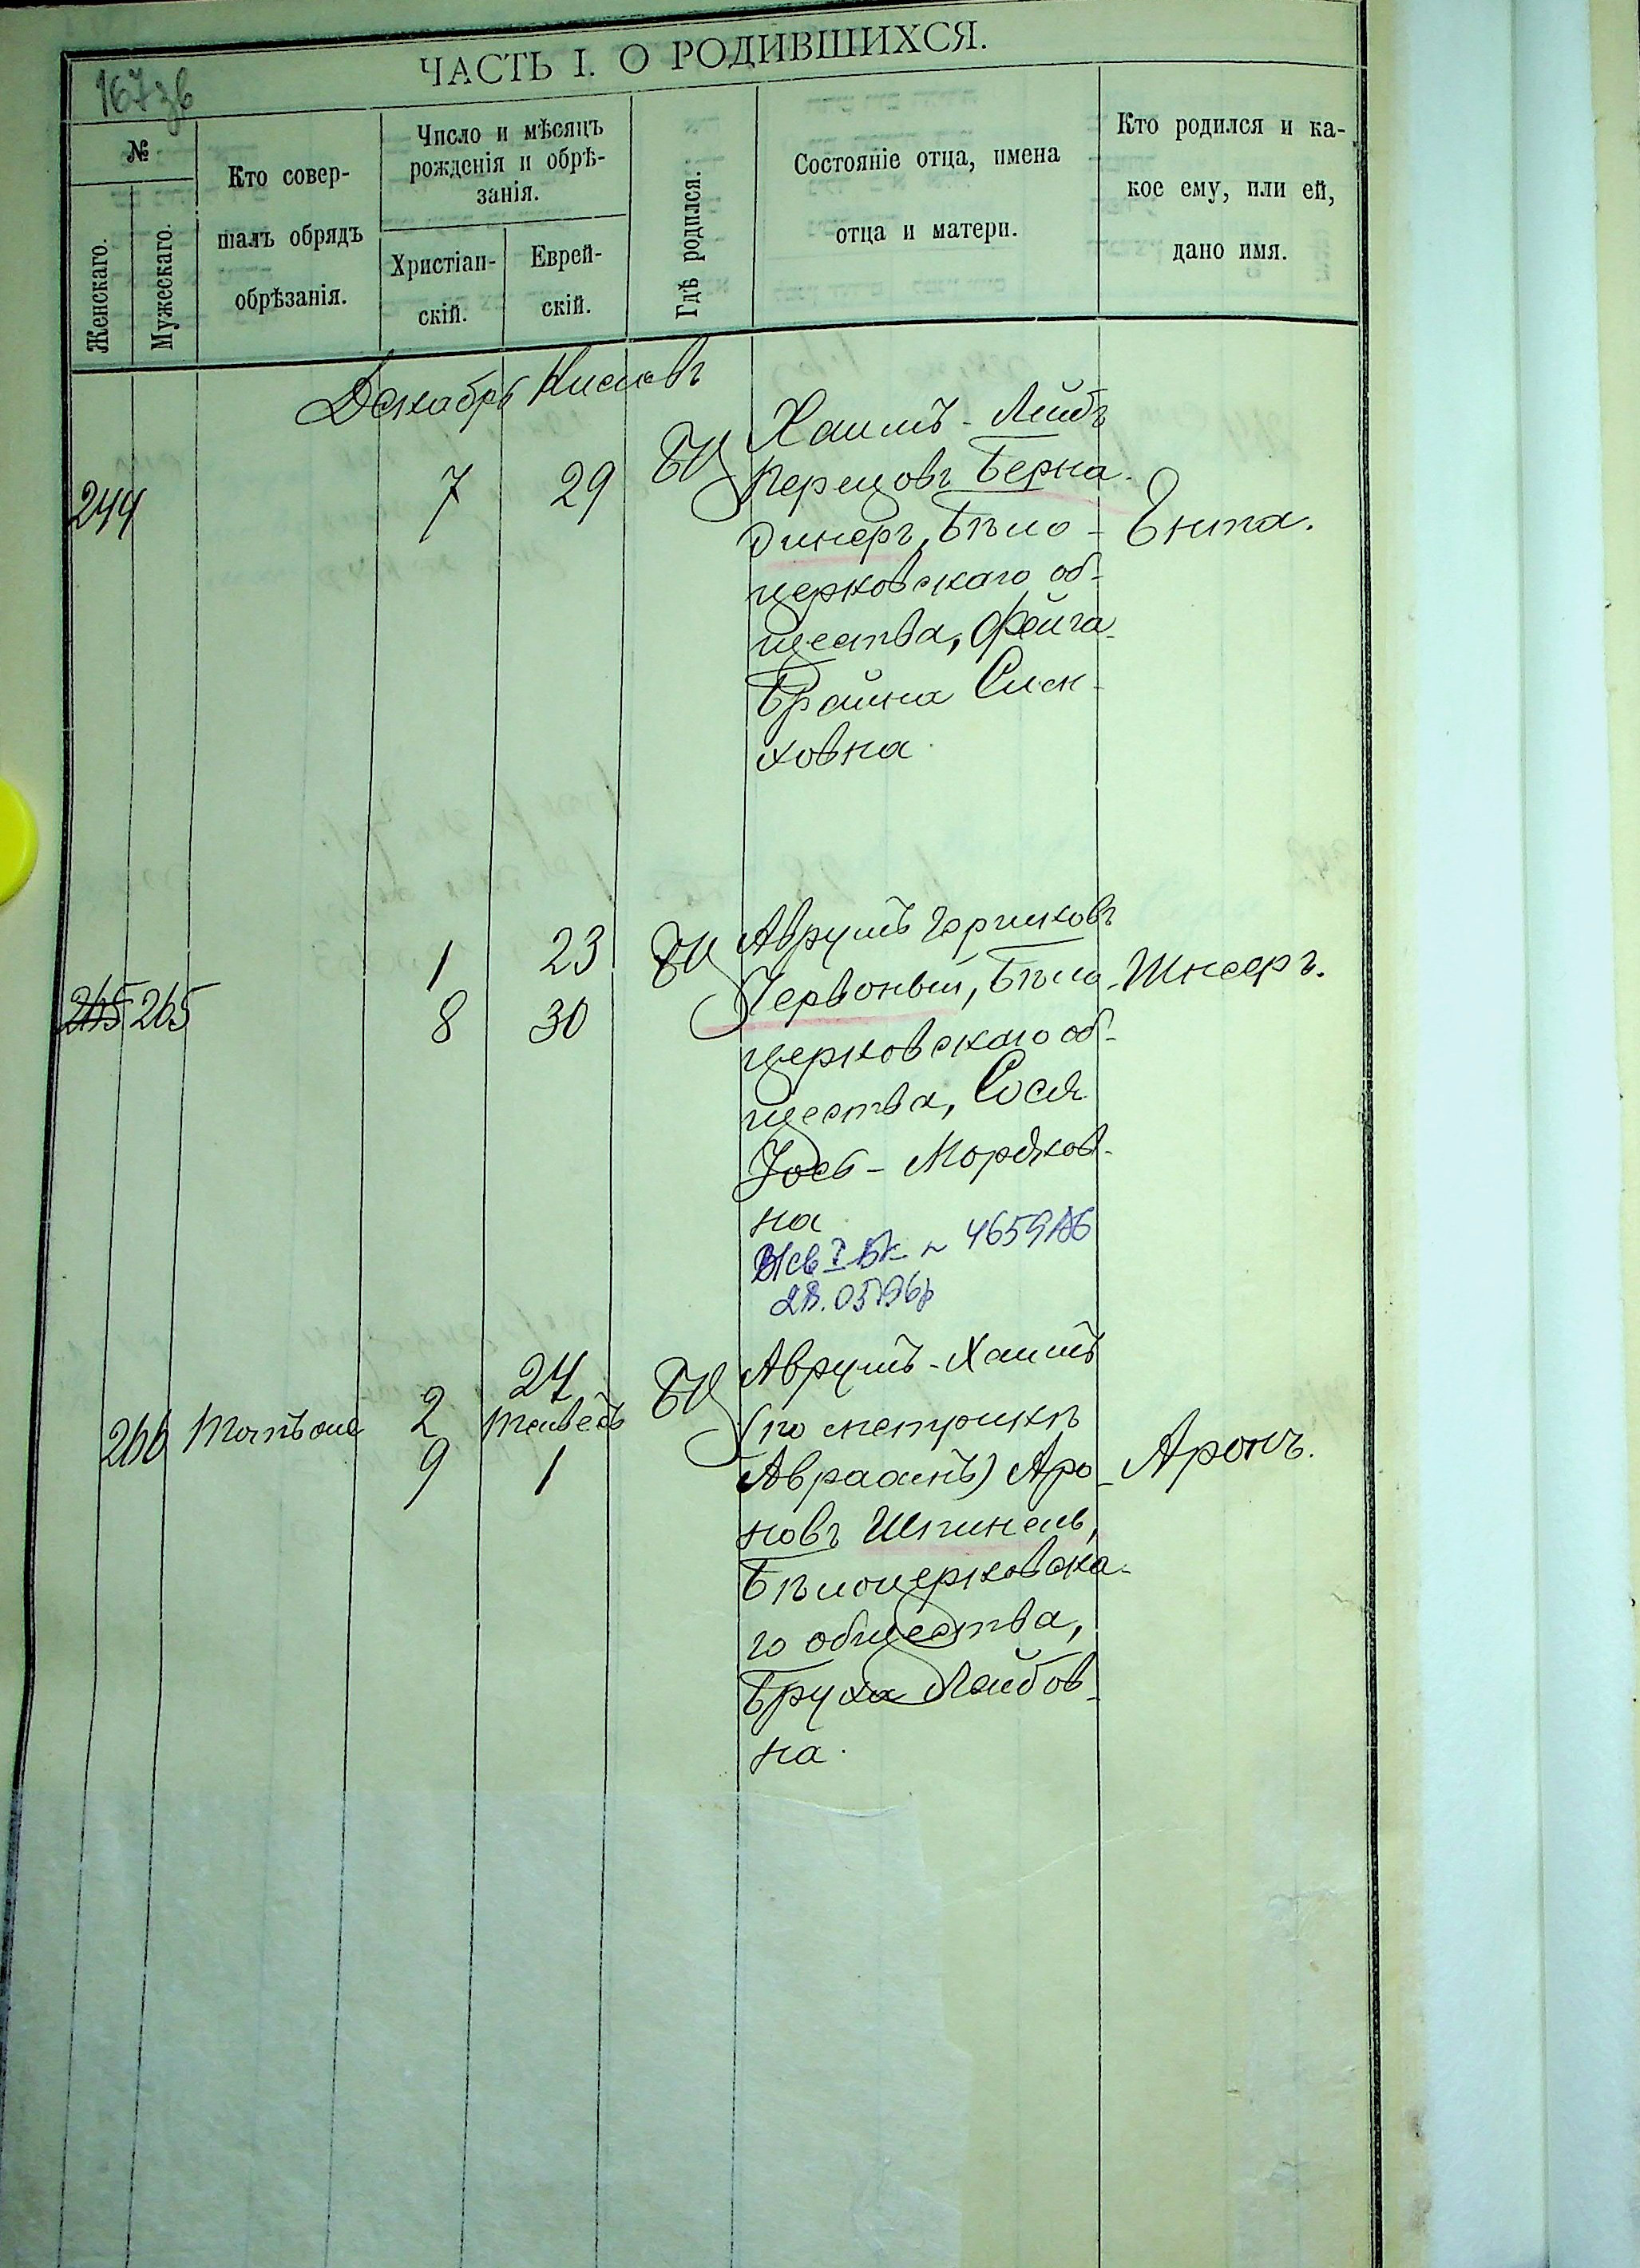 167зв
ЧАСТЬ I. О РОДИВШИХСЯ.
№
Женскаго.
Мужескаго.
Кто совер-
шалъ обрядъ
обрѣзанія.
Число и мѣсяцъ
рожденія и обрѣ-
занія.
Христіан-
скій.
Еврей-
скій.
Гдѣ родился.
Состояніе отца, имена
отца и матери.
Кто родился и ка-
кое ему, или ей,
дано имя.
Декабрь Кислевъ
244 7 29 БЦ
Хаимъ-Лейбъ
Перецовъ Берна-
динеръ, Бѣло-
церковскаго об-
щества, Фейга-
Брайна Сим-
ховна.
Ента.
265 265
1 23 БЦ
8 30
Аврумъ Гершковъ
Червоный, Бѣло-
церковскаго об-
щества, Сося
Іось-Мордков-
на
4659АБ
28.05.96р
Шнееръ.
266
2 24 БЦ
9 Тейвесъ 1
Аврумъ-Хаимъ
(по метрикѣ
Авраамъ) Аро-
новъ Шпинель,
Бѣлоцерковска-
го общества,
Бруха Лейбов-
на.
Аронъ.